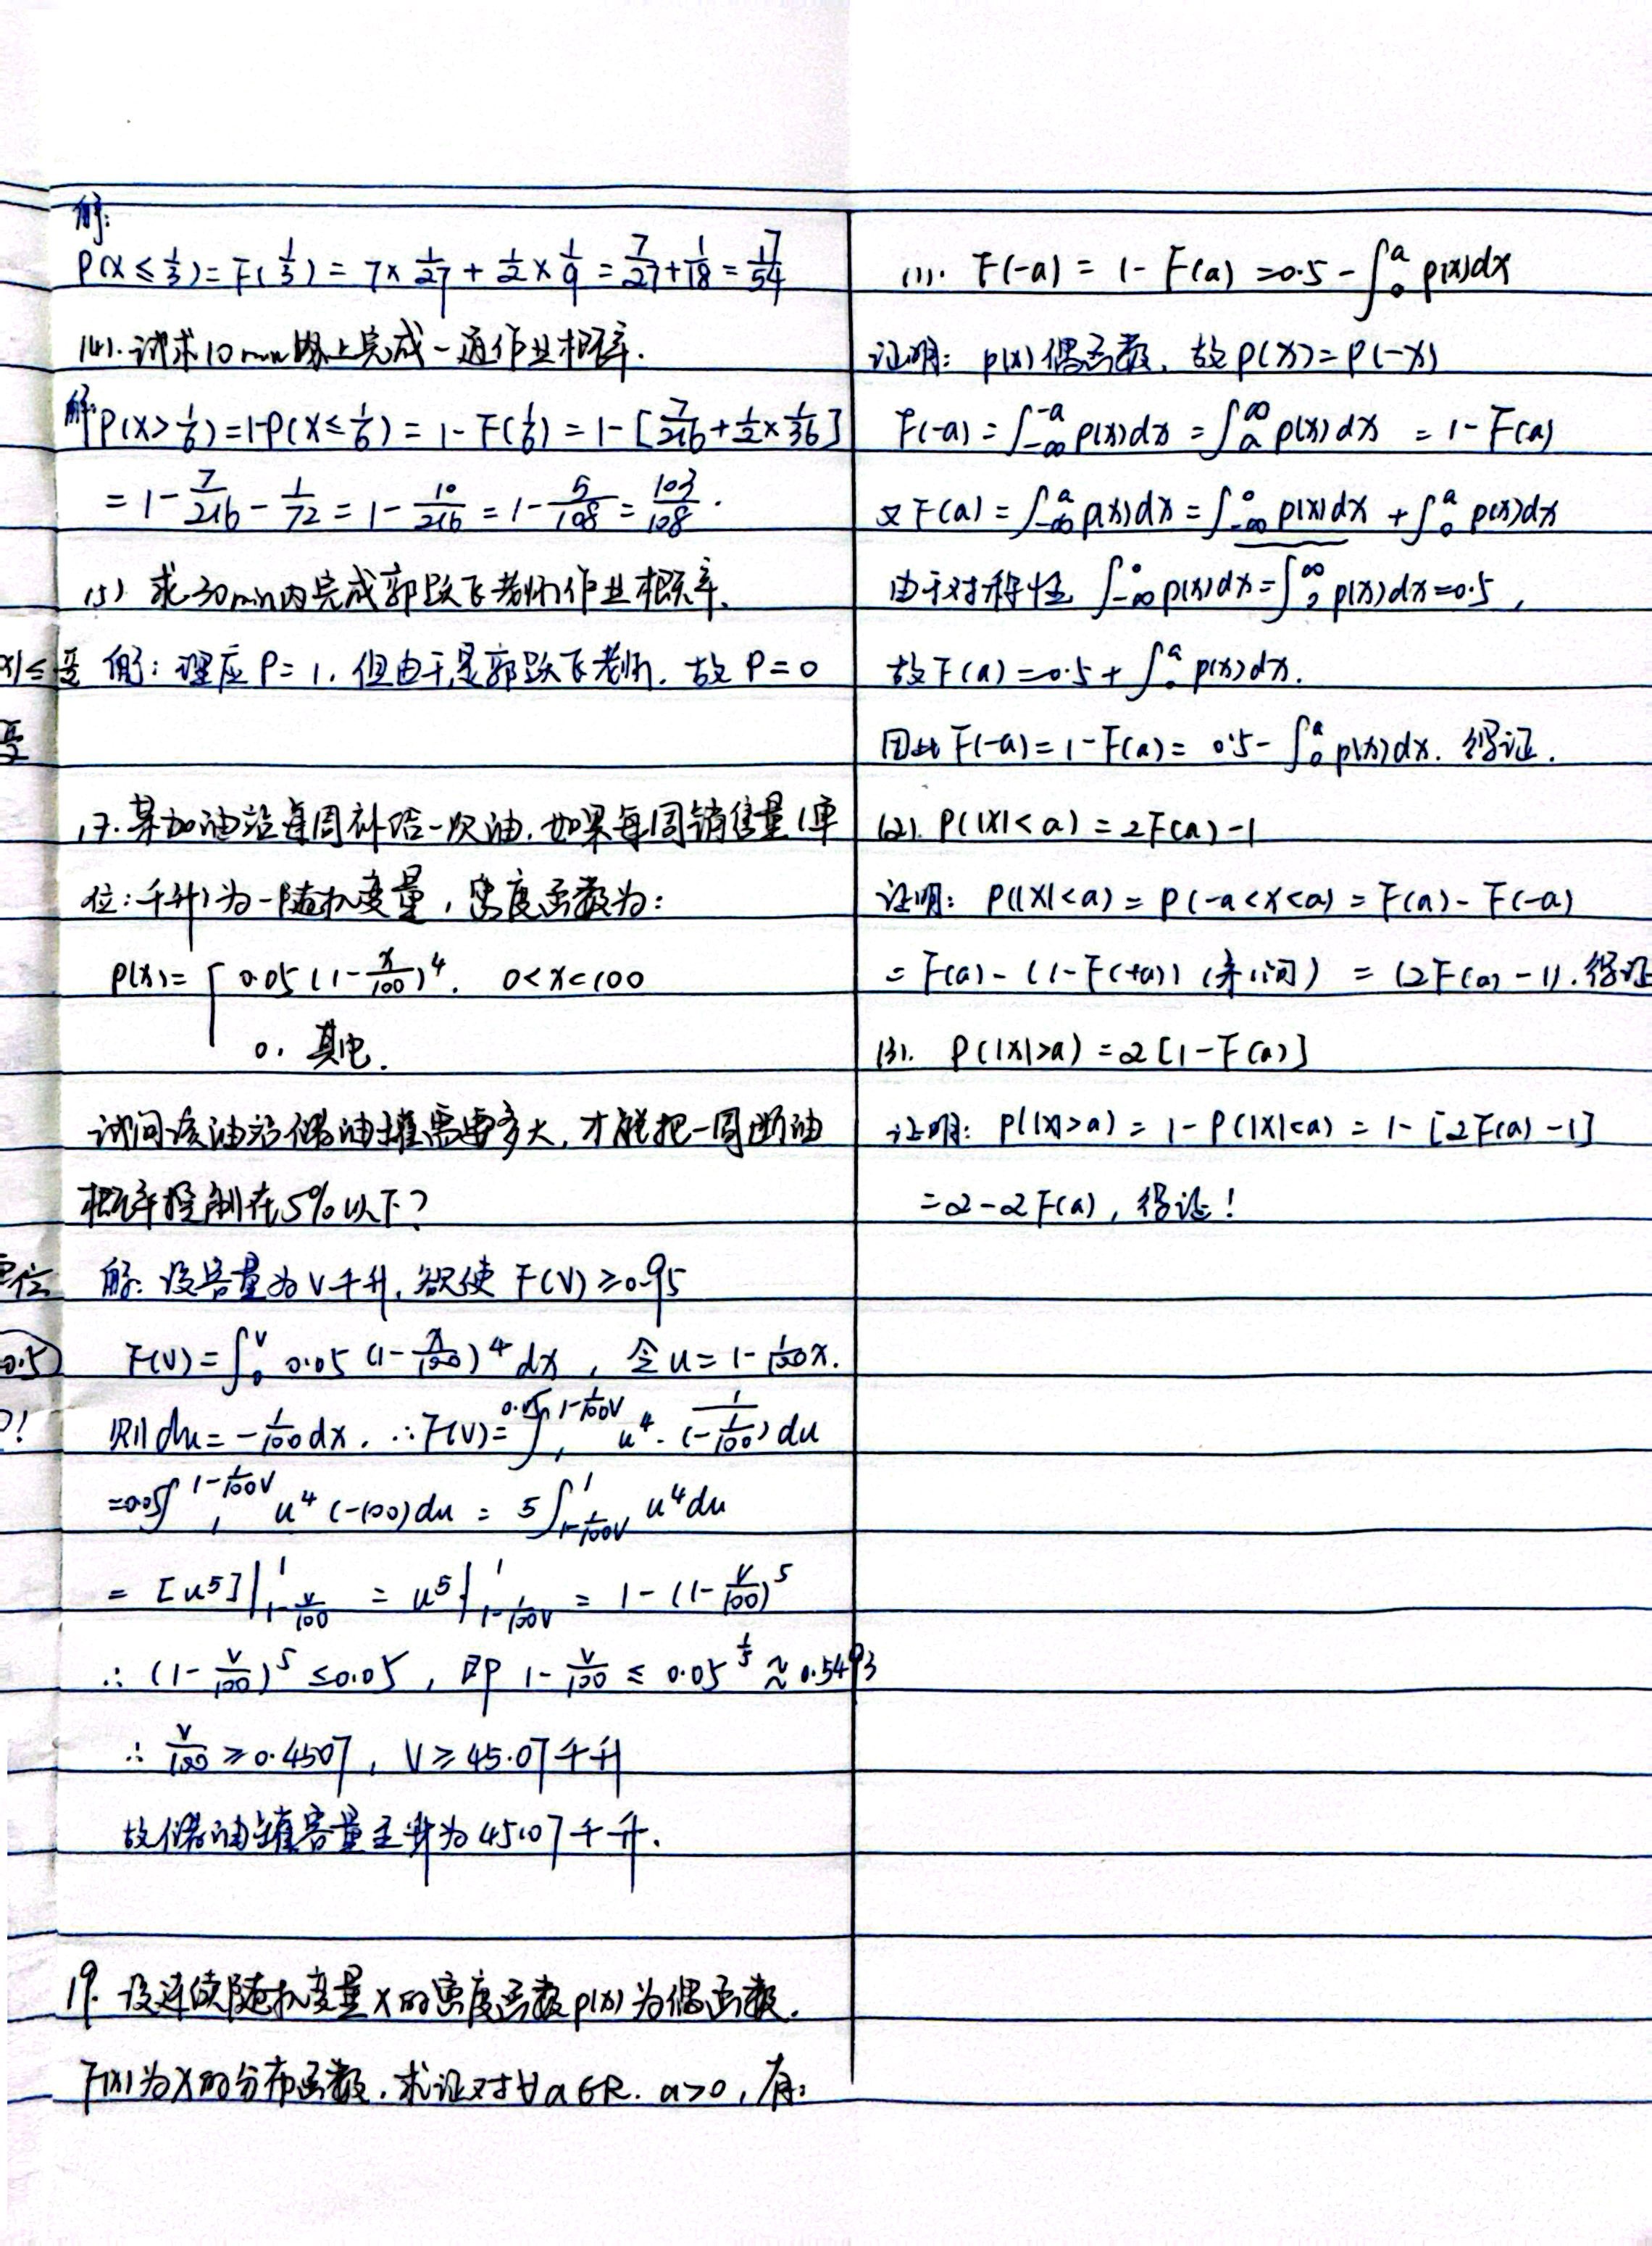 解:
P(X ≤ 1/3) = F(1/3) = 7×1/27 + 1/2×1/9 = 7/27 + 1/18 = 17/54
(4). 试求10min以上完成一道作业概率.
解: P(X > 1/6) = 1-P(X ≤ 1/6) = 1 - F(1/6) = 1 - [7/216 + 1/2 × 1/36]
= 1 - 7/216 - 1/72 = 1 - 10/216 = 1 - 5/108 = 103/108.
(5) 求30min内完成郭跃飞老师作业概率.
x)≤ 解: 理应P=1, 但由于是郭跃飞老师, 故P=0
17. 某加油站每周补给一次油, 如果每周销售量(单
位:千升)为一随机变量, 密度函数为:
p(x) = { 0.05 (1 - x/100)^4, 0<x<100
0, 其它.
试问该油站储油罐需要多大, 才能把一周断油
概率控制在5%以下?
位 解: 设容量为V千升, 欲使 F(V) ≥ 0.95
0.5) F(V) = ∫_0^V 0.05 (1 - x/100)^4 dx, 令 u = 1 - 1/100 x.
! 则 du = -1/100 dx. ∴ F(V) = 0.05∫_1^{1-1/100 V} u^4 · 1/(-1/100) du
= 0.05∫_1^{1-1/100 V} u^4 (-100) du = 5∫_{1-1/100 V}^1 u^4 du
= [u^5]|_{1-V/100}^1 = u^5|_{1-1/100 V}^1 = 1 - (1 - V/100)^5
∴ (1 - V/100)^5 ≤ 0.05, 即 1 - V/100 ≤ 0.05^{1/5} ≈ 0.5493
∴ V/100 ≥ 0.4507, V ≥ 45.07千升
故储油罐容量至少为45.07千升.
19. 设连续随机变量X的密度函数p(x)为偶函数.
F(x)为X的分布函数. 求证对∀a∈R. a>0, 有:
(1). F(-a) = 1 - F(a) = 0.5 - ∫_0^a p(x)dx
证明: p(x)偶函数, 故p(x) = p(-x)
F(-a) = ∫_{-∞}^{-a} p(x)dx = ∫_a^∞ p(x)dx = 1 - F(a)
又F(a) = ∫_{-∞}^a p(x)dx = ∫_{-∞}^0 p(x)dx + ∫_0^a p(x)dx
由于对称性 ∫_{-∞}^0 p(x)dx = ∫_0^∞ p(x)dx = 0.5,
故F(a) = 0.5 + ∫_0^a p(x)dx.
因此F(-a) = 1 - F(a) = 0.5 - ∫_0^a p(x)dx. 得证.
(2). P(|X|<a) = 2F(a) - 1
证明: P(|X|<a) = P(-a<X<a) = F(a) - F(-a)
= F(a) - (1 - F(+a)) (第1问) = (2F(a) - 1). 得证
(3). P(|X|>a) = 2[1 - F(a)]
证明: P(|X|>a) = 1 - P(|X|<a) = 1 - [2F(a) - 1]
= 2 - 2F(a), 得证!